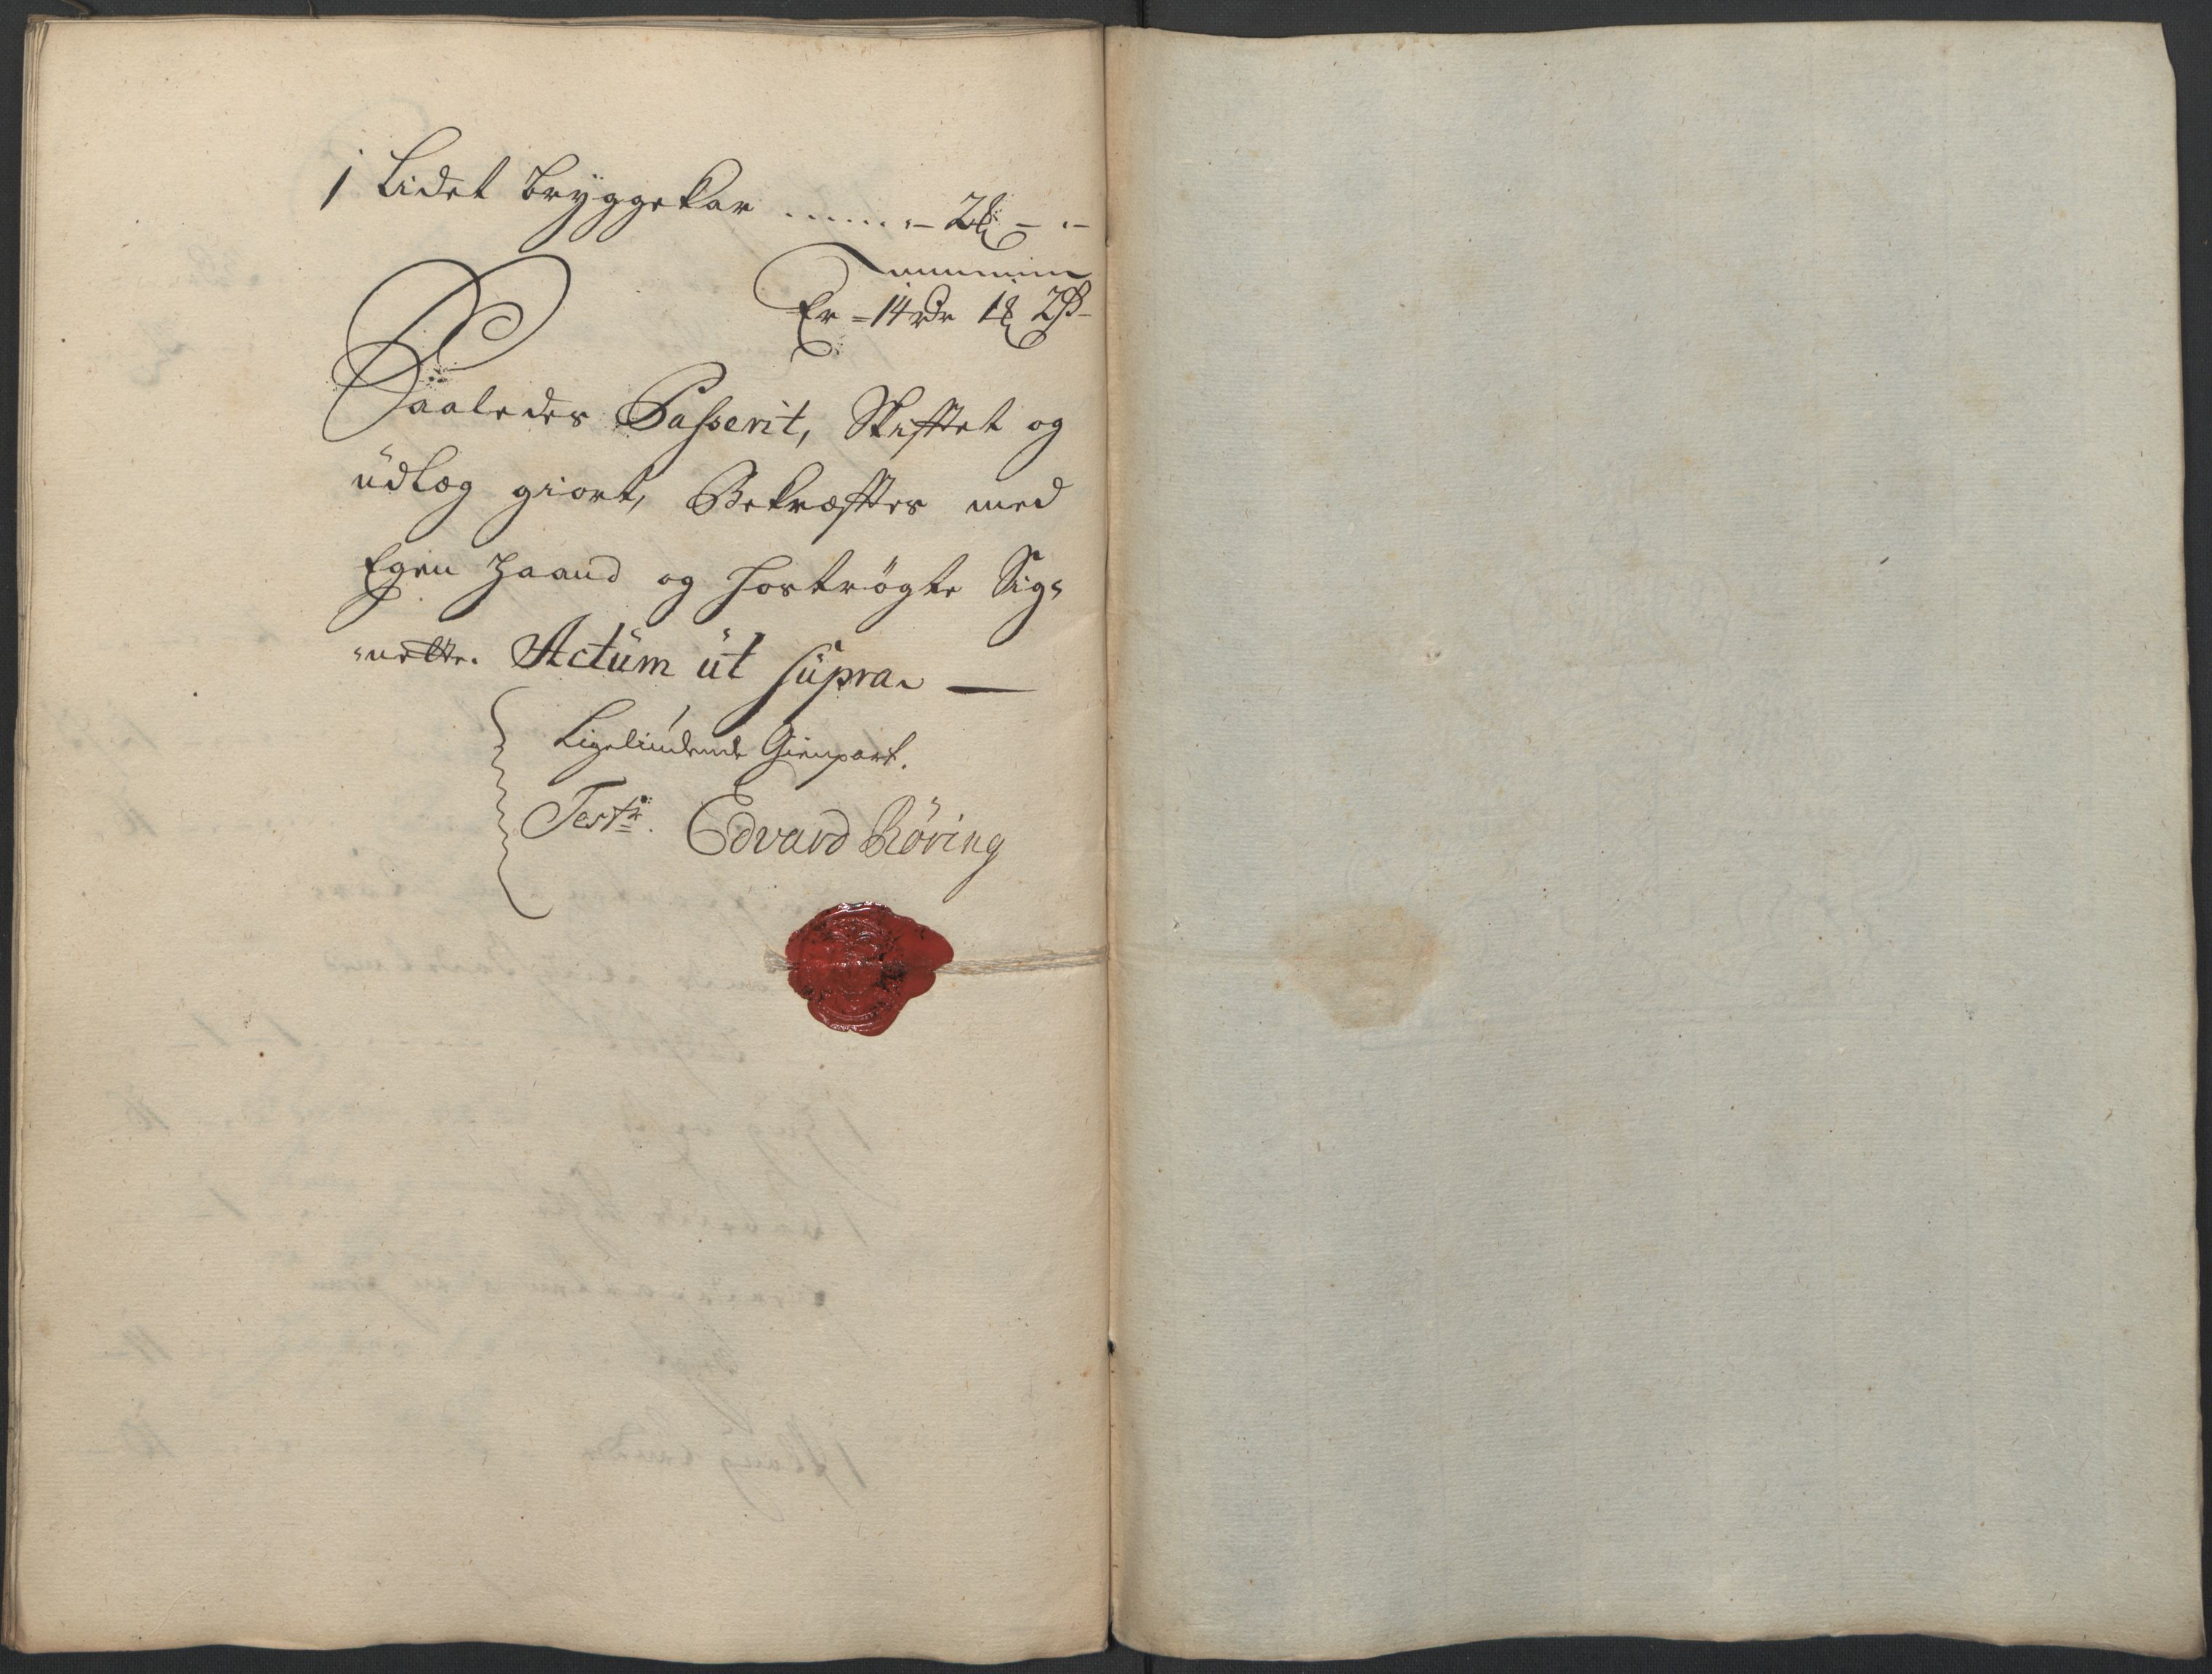 1 Lidet Bryggekar ...... - 2 - -
Er = 14 rdr 1 2 ß
Saaledes Passerit, Skifftet og
üdlæg giort, Bekræffter med
Egen Haand og hoströgte Sig-
-nette. Actüm üt süpra. —
Ligelindende Gienpart.
Test: Edvard Röring